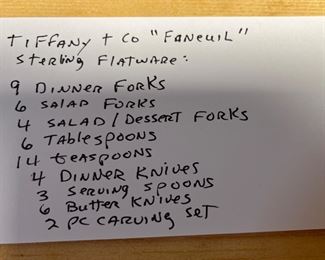 Tiffany + Co "Faneuil"
Sterling Flatware:
9 Dinner Forks
6 Salad Forks
4 Salad/Dessert Forks
6 Tablespoons
14 teaspoons
4 Dinner Knives
3 Serving Spoons
6 Butter Knives
2 pc carving set